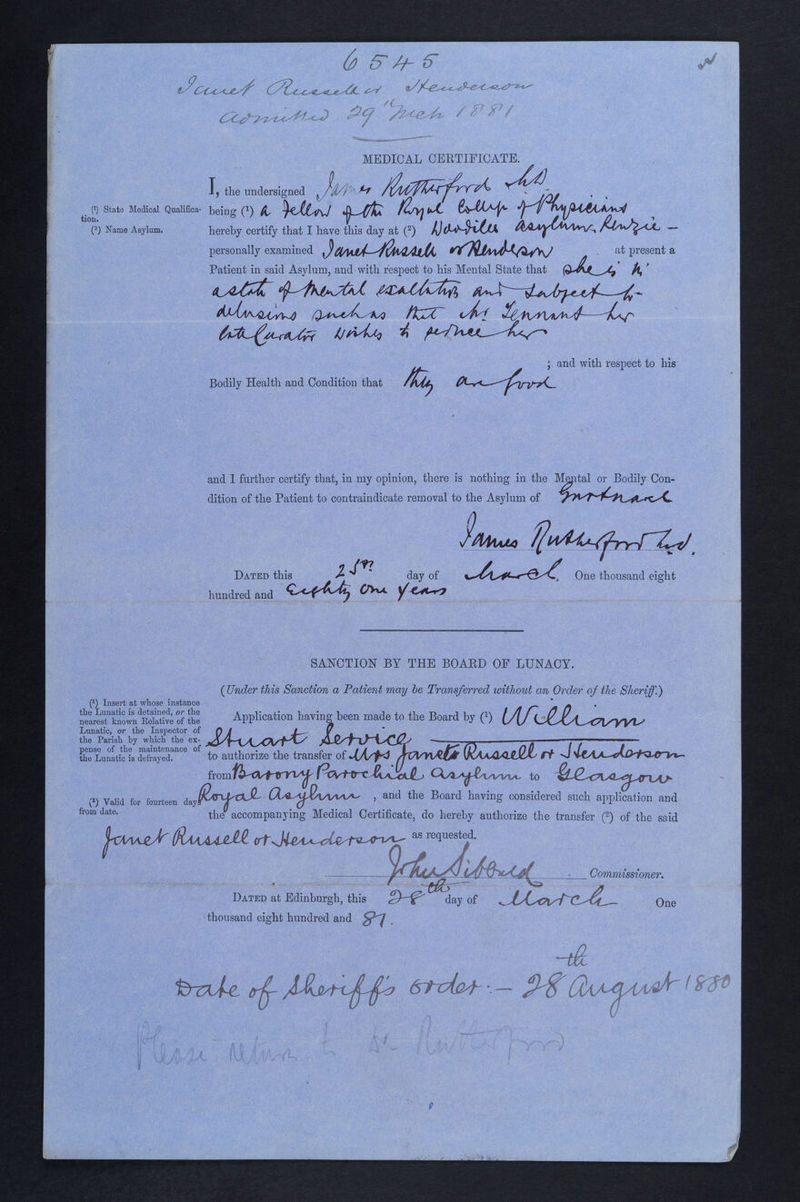 6545
Janet Russell or Henderson
admitted 29th Mch 1881
MEDICAL CERTIFICATE.
I, the undersigned James Rutherford M.D.
(¹) State Medical Qualification.
being (¹) a Fellow of the Royal College of Physicians
(²) Name Asylum.
hereby certify that I have this day at (²) Woodilee Asylum, Lenzie —
personally examined Janet Russell or Henderson at present a
Patient in said Asylum, and with respect to his Mental State that she is in
a state of mental exaltation and subject to
delusions such as that Mr Tennant her
late Curator wishes to seduce her
; and with respect to his
Bodily Health and Condition that they are good
and I further certify that, in my opinion, there is nothing in the Mental or Bodily Con-
dition of the Patient to contraindicate removal to the Asylum of Gartnavel
James Rutherford M.D.
DATED this 25th day of March. One thousand eight
hundred and Eighty One years
SANCTION BY THE BOARD OF LUNACY.
(Under this Sanction a Patient may be Transferred without an Order of the Sheriff.)
(¹) Insert at whose instance
the Lunatic is detained, or the
nearest known Relative of the
Lunatic, or the Inspector of
the Parish by which the ex-
pense of the maintenance of
the Lunatic is defrayed.
Application having been made to the Board by (¹) William
Stuart Service
to authorize the transfer of Mrs Janet Russell or Henderson
from Barony Parochial Asylum to Glasgow
(²) Valid for fourteen days
from date.
Royal Asylum, and the Board having considered such application and
the accompanying Medical Certificate, do hereby authorize the transfer (²) of the said
Janet Russell or Henderson as requested.
John Sibbald Commissioner.
DATED at Edinburgh, this 28th day of March One
thousand eight hundred and 81.
Date of Sheriff's order :— 28th August 1880
Please return to Dr Rutherford